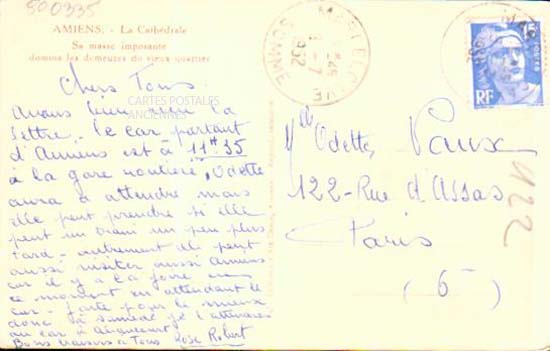 500335
AMIENS. - La Cathédrale
Sa masse imposante
domine les demeures du vieux quartier
Chers Tous
Avons bien reçu la
lettre. le car partant
d'Amiens est à 11H35
à la gare routière, Odette
aura à attendre mais
elle peut prendre si elle
peut un train un peu plus
tard - autrement elle peut
aussi visiter aussi Amiens
car il y a la foire en
ce moment en attendant le
car - porte pour le mieux
donc à samedi je l'attendrai
au car à
Bons baisers à Tous Rose Robert
CARTES POSTALES
ANCIENNES
SOMME
1952
RF
Melle Odette Vaux
122 - Rue d'Assas
Paris
(6)
422